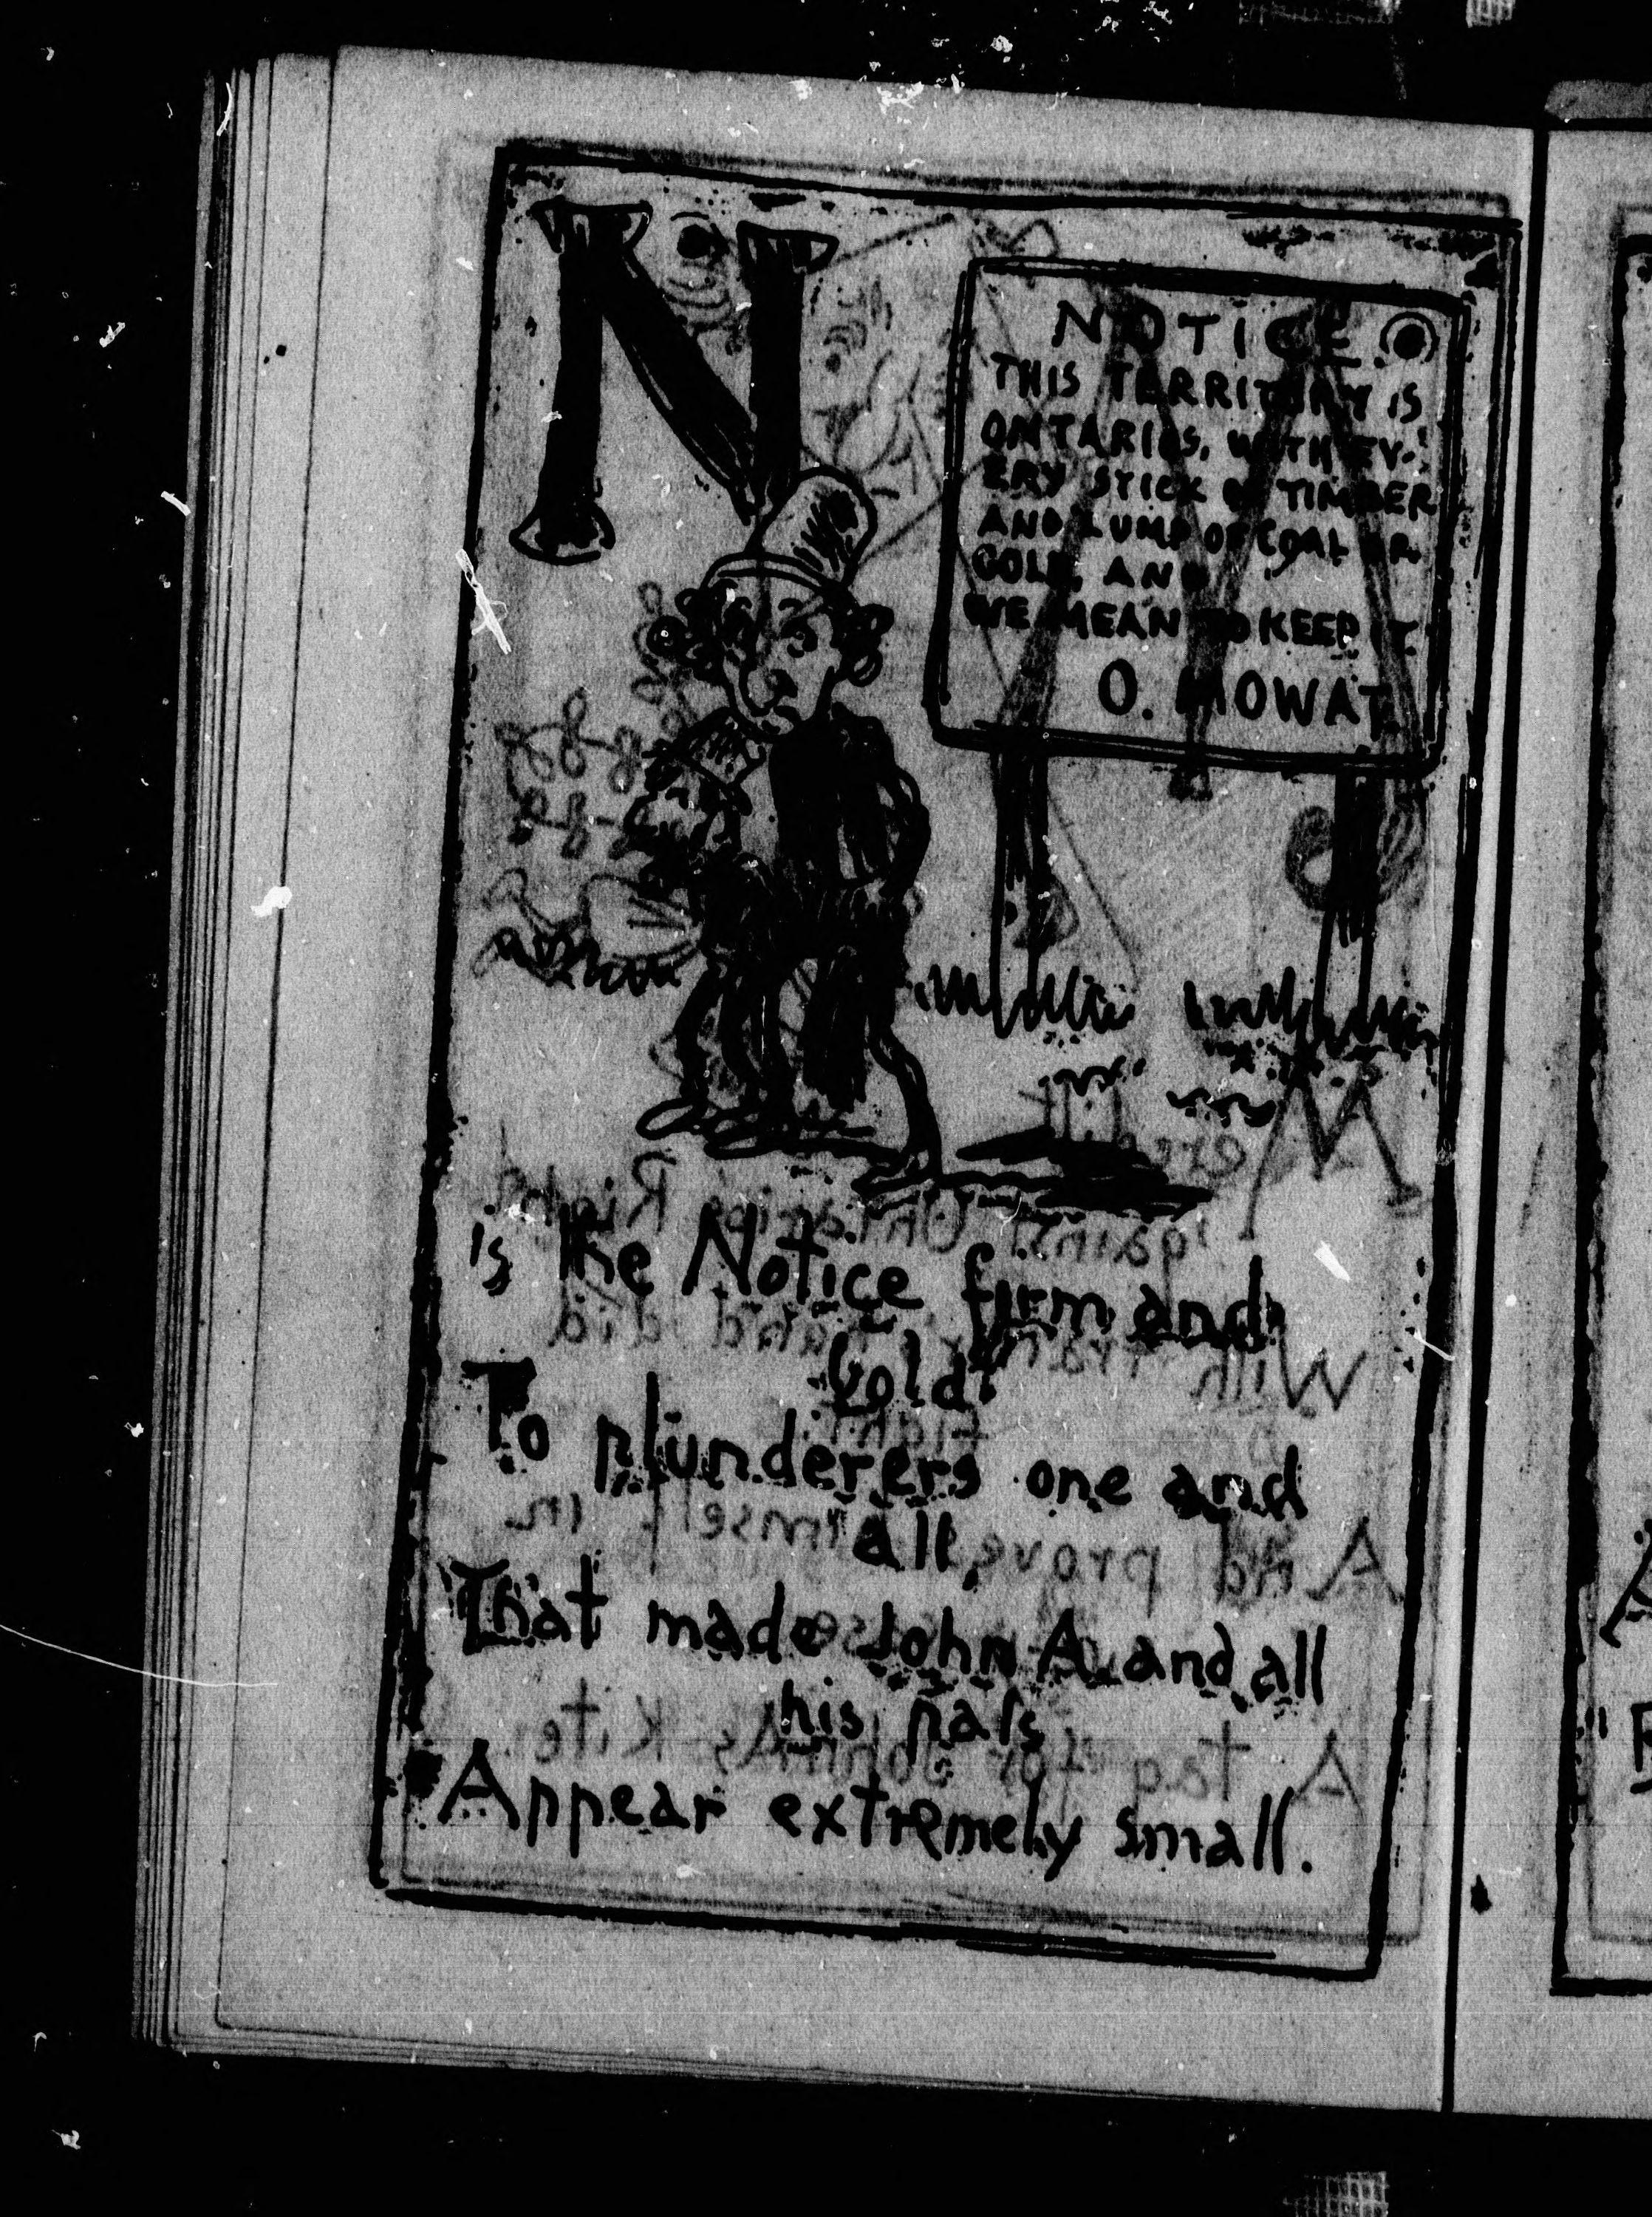 N
NOTICE.
THIS TERRITORY IS
ONTARIOS, WITH EV-
ERY STICK OF TIMBER
AND LUMP OF COAL OR
GOLD, AND
WE MEAN TO KEEP IT
O. MOWAT.
is the Notice firm and
bold
To plunderers one and
all,
That made John A. and all
his pals
Appear extremely small.